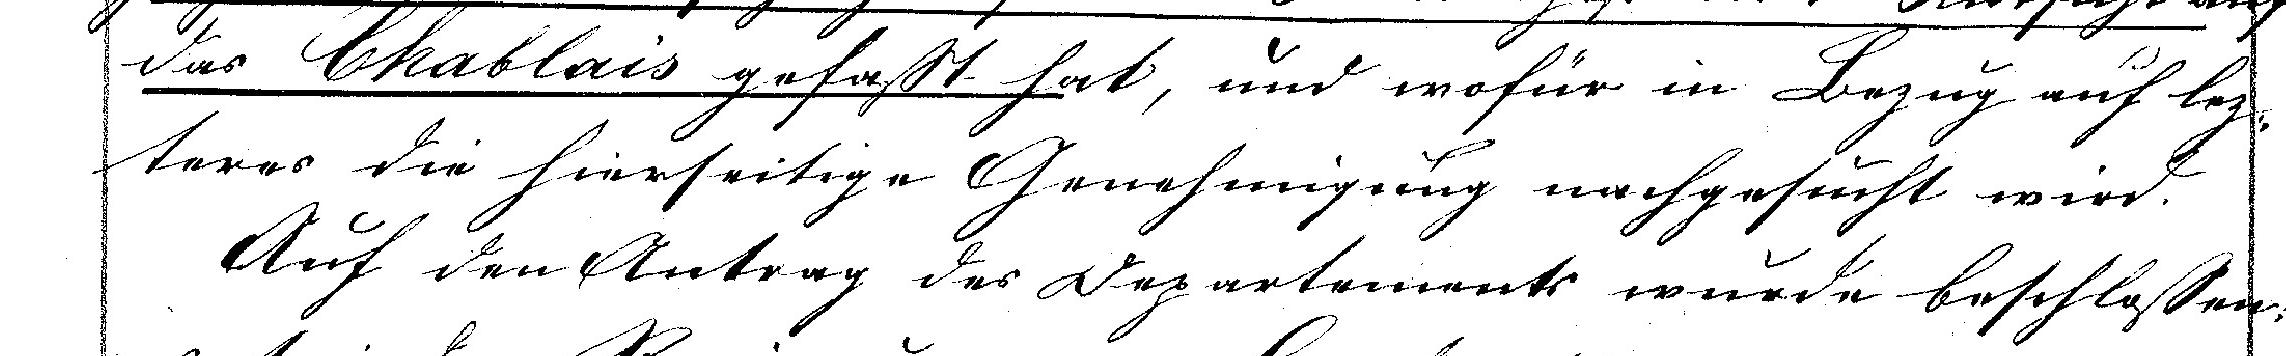 das Chablais gefaßt hat, und wofür in Bezug auf lez-
teres die hierseitige Genehmigung nachgesucht wird.
Auf den Antrag des Departements wurde beschlossen: